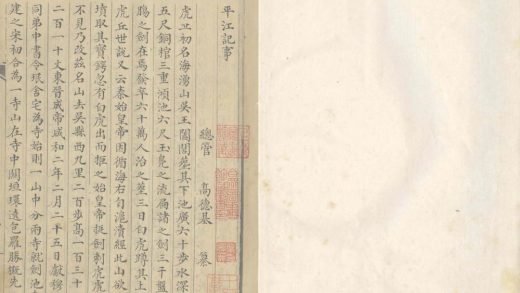 平江記事
總管 高德基 纂
虎丘初名海湧山吳王闔閭墓其下池廣六十步水深
五尺銅棺三重澒池六尺玉鳧之流扁諸之劍三千盤
腸之劍在焉發卒六十萬人治之葬三日白虎蹲其上
虎丘世說又云秦始皇帝因循海右旬滬瀆經此山欲
墳取其寶鍔忽有白虎出而拒之始皇帝挺劍刺虎虎
不見乃改茲名山去吳縣西九里二百步高一百三十
二百一十丈東晉咸帝咸和二年二月二十五日獻穆
同弟中書令珉舍宅為寺始則一山中分兩寺就劍池
建之宋初合為一寺山在寺中圍垣環遶包羅勝概先